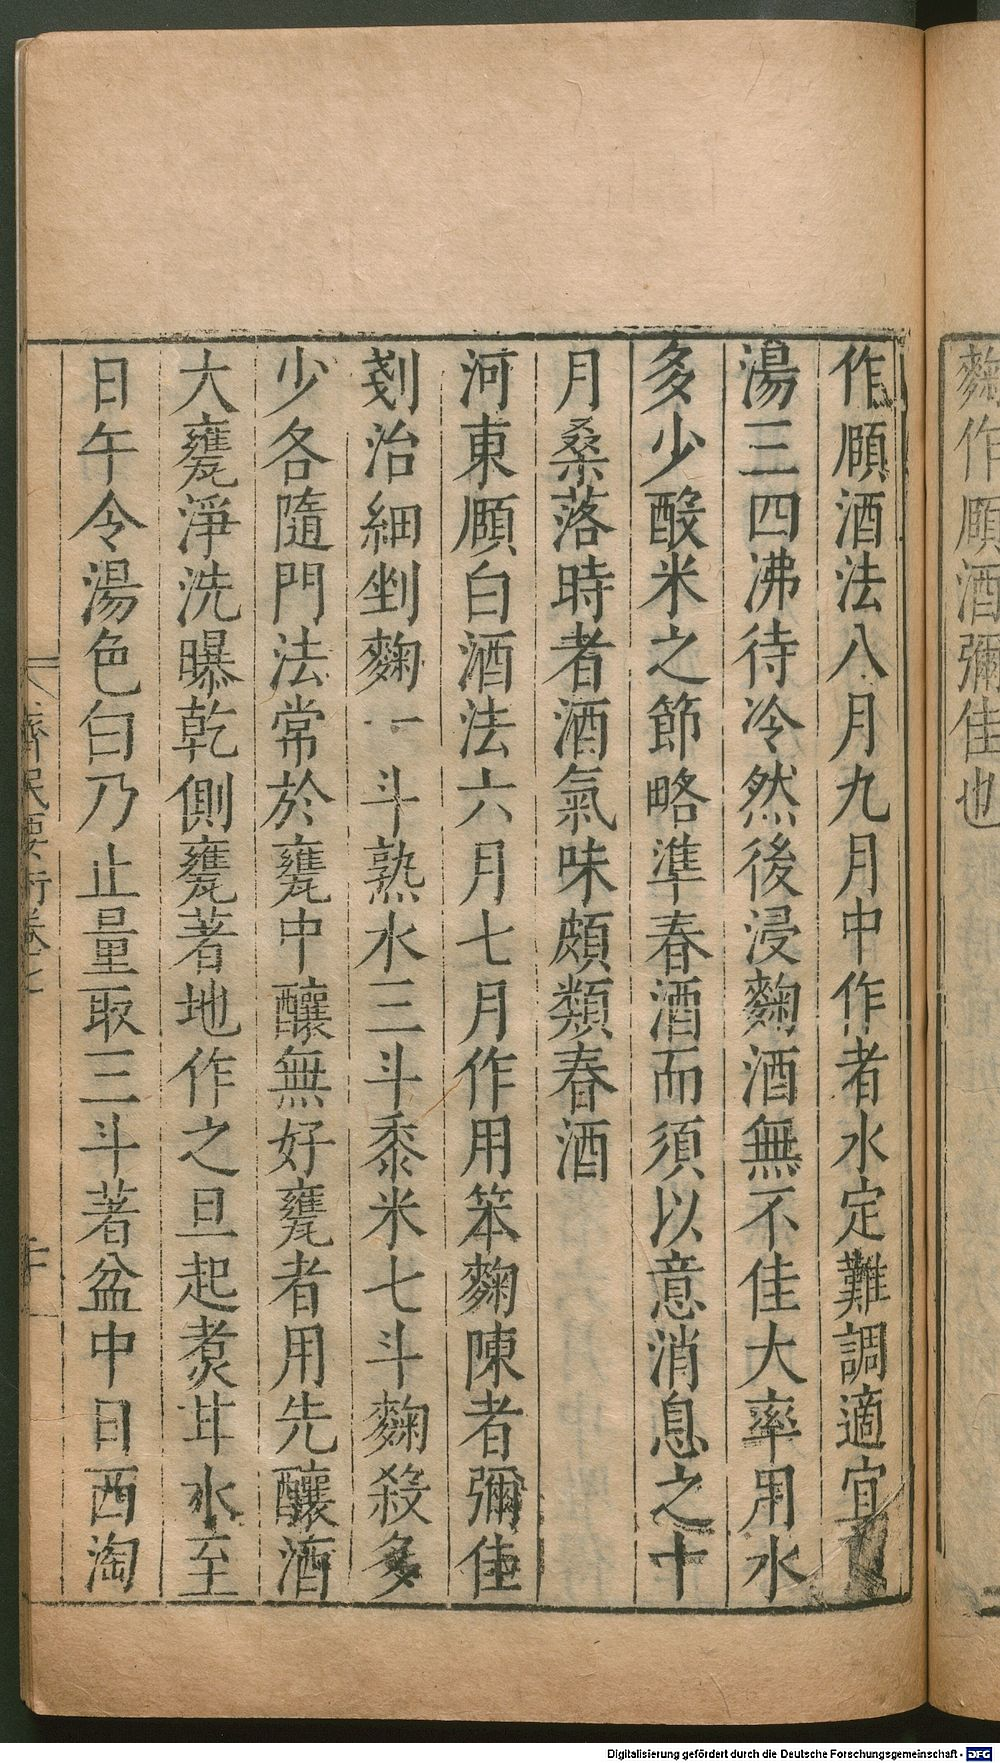 麴作頤酒彌佳也
作頤酒法八月九月中作者水定難調適宜
湯三四沸待冷然後浸麴酒無不佳大率用水
多少酘米之節略準春酒而須以意消息之十
月桑落時者酒氣味頗類春酒
河東頤白酒法六月七月作用笨麴陳者彌佳
剗治細剉麴一斗熟水三斗黍米七斗麴殺多
少各隨門法常於甕中釀無好甕者用先釀酒
大甕淨洗曝乾側甕著地作之旦起煑甘水至
日午令湯色白乃止量取三斗著盆中日西淘
齊民要術卷七
Digitalisierung gefördert durch die Deutsche Forschungsgemeinschaft - DFG